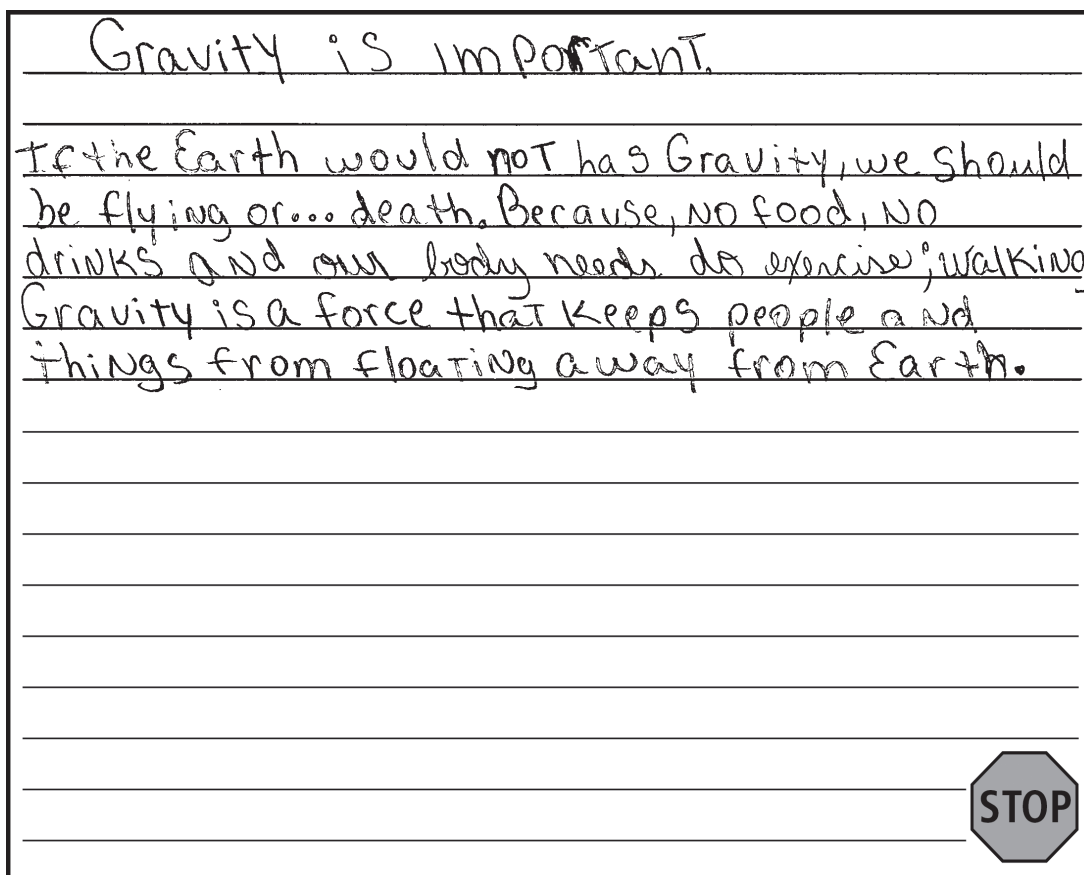 Gravity is important.
If the Earth would not has Gravity, we should
be flying or... death. Because, no food, no
drinks and our body needs do exercise; walking
Gravity is a force that keeps people and
things from floating away from Earth.
STOP